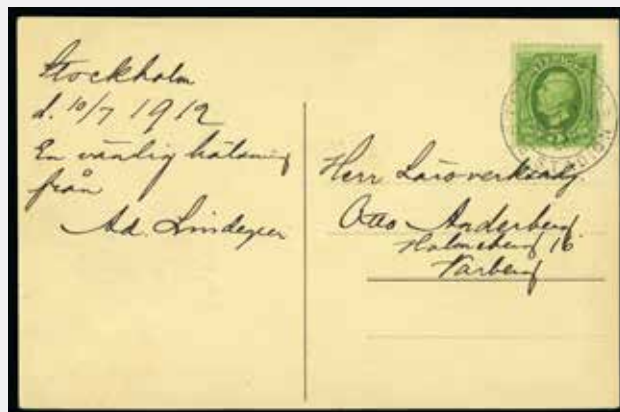 Stockholm
d. 10/7 1912
En vänlig hälsning
från
Ad. Lindegren
Herr Läroverksadj.
Otto Anderberg
16
Varberg
STADION